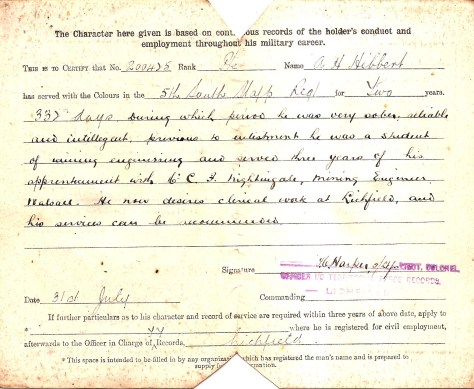 The Character here given is based on continuous records of the holder's conduct and
employment throughout his military career.
THIS IS TO CERTIFY that No. 200425 Rank Pte Name A H Hibbert
has served with the Colours in the 5th South Staff Regt for Two years.
337 days. During which period he was very sober, reliable
and intelligent, previous to enlistment he was a student
of mining engineering and served three years of his
apprenticement with Mr C. F. Nightingale, Mining Engineer
Walsall. He now desires clerical work at Lichfield, and
his services can be recommended
Signature Harper
LIEUT. COLONEL,
OFFICER I/C RECORDS,
Date 31st July Commanding
If further particulars as to his character and record of service are required within three years of above date, apply to
* where he is registered for civil employment,
afterwards to the Officer in Charge of Records. Lichfield
* This space is intended to be filled in by any organization which has registered the man's name and is prepared to
supply further information.